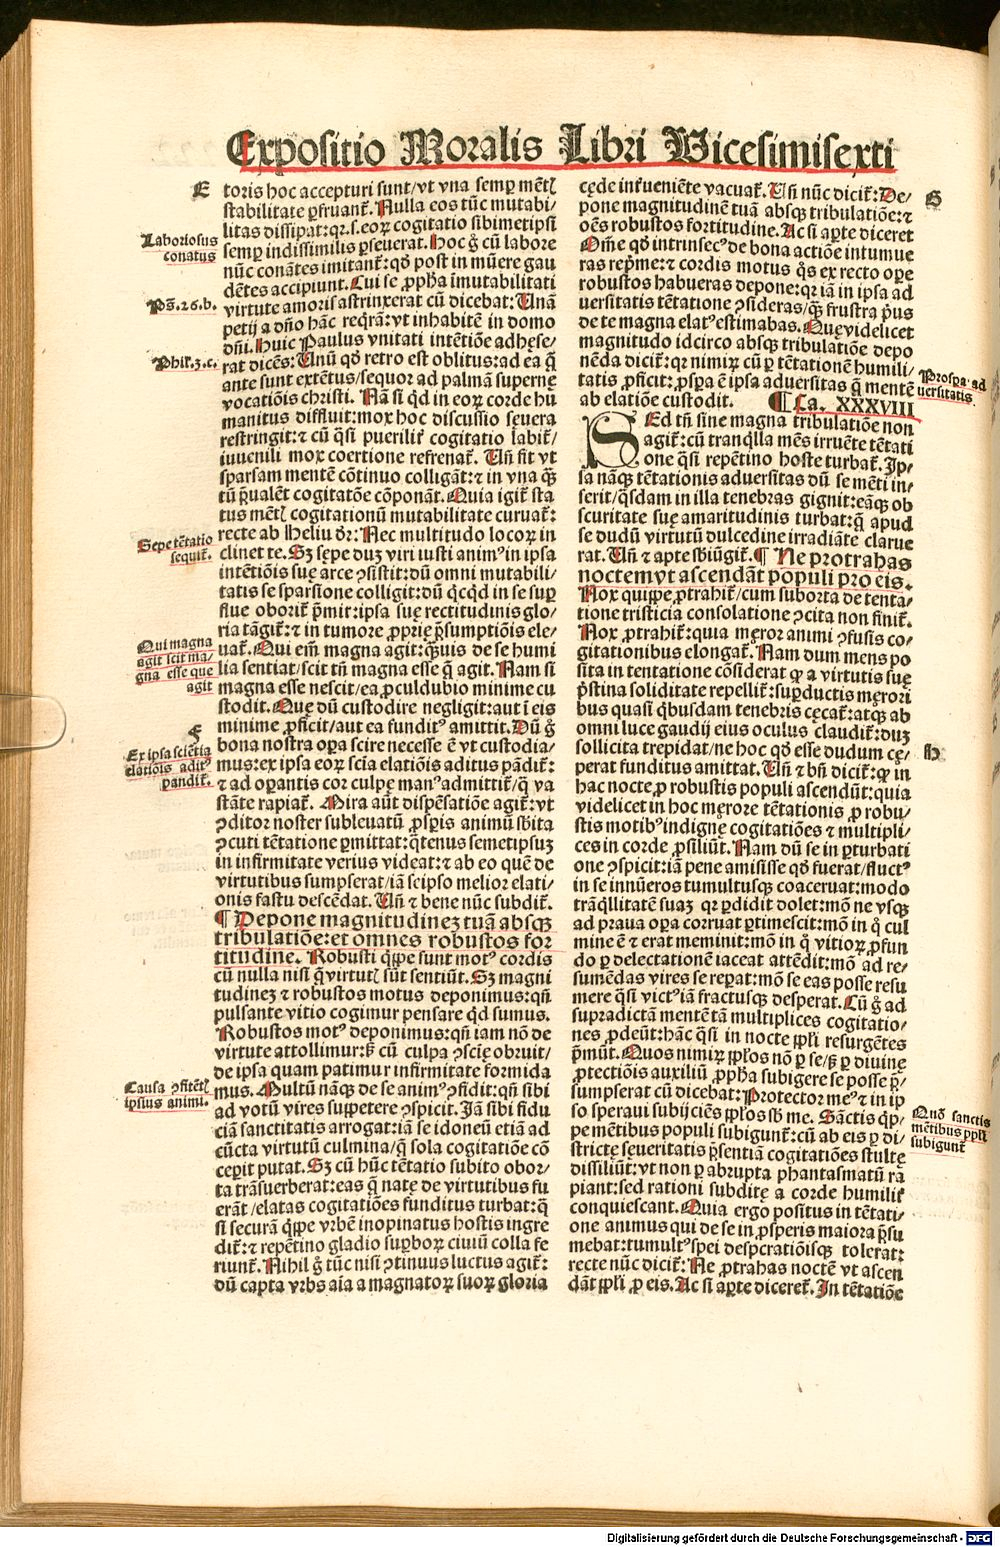 Expositio Moralis Libri Vicesimisexti
E
toris hoc accepturi sunt/vt vna semꝑ mētꝭ
stabilitate ꝑfruant᷑. Nulla eos tūc mutabi-
litas dissipat: qꝛ.s. eoꝝ cogitatio sibimetipsi
semꝑ indissimilis ꝑseuerat. Hoc g̊ cū labore
nūc conātes imitant᷑: qd̛ post in mūere gau
dētes accipiunt. Cui se ꝓpħa īmutabilitati
virtute amoris astrinxerat cū dicebat: Unā
petij a dn̄o hāc reqrā: vt inhabitē in domo
dn̄i. Huic Paulus vnitati intētiōe adhęse/
rat dicēs: Unū qd̛ retro est oblitus: ad ea q̄
ante sunt extētus/sequor ad palmā superne
vocatiōis christi. Nā si qd in eoꝝ corde hu
manitus diffluit: mox hoc discussio seuera
restringit: ⁊ cū q̄si puerilit᷑ cogitatio labit᷑/
iuuenili mox coertione refrenat᷑. Un̄ fit vt
sparsam mentē cōtinuo colligāt: ⁊ in vna ꝙ̄
tū p̄ualēt cogitatōe cōponāt. Quia igit᷑ sta
tus mētꝭ cogitationū mutabilitate curuat᷑:
recte ab Heliu dr̄: Nec multitudo locoꝝ in
clinet te. Sꝫ sępe duꝫ viri iusti animꝰ in ipsa
intētiōis suę arce ꝯsistit: dū omni mutabili/
tatis se sparsione colligit: dū qcqd in se suꝑ
flue oborit᷑ p̄mit: ipsa suę rectitudinis glo/
ria tāgit᷑: ⁊ in tumore ꝓprię p̄sumptiōis ele/
uat᷑. Qui em̄ magna agit: q̄uis de se humi
lia sentiat/scit tn̄ magna esse q̄ agit. Nam si
magna esse nescit/ea ꝓculdubio minime cu
stodit. Quę dū custodire negligit: aut ī eis
minime ꝓficit/aut ea funditꝰ amittit. Dū g̊
bona nostra oꝑa scire necesse ē vt custodia/
mus: ex ipsa eoꝝ scīa elatiōis aditus pādit᷑:
⁊ ad oꝑantis cor culpę manꝰ admittit᷑/q̄ va
stāte rapiat᷑. Mira aūt dispēsatiōe agit᷑: vt
ꝯditor noster subleuatū ꝓsꝑis animū sb̄ita
ꝯcuti tētatione ꝑmittat: q̄tenus semetipsuꝫ
in infirmitate verius videat: ⁊ ab eo quē de
virtutibus sumpserat/iā seipso melior elati/
onis fastu descēdat. Un̄ ⁊ bene nūc subdit᷑.
¶ Depone magnitudineꝫ tuā absqꝫ
tribulatiōe: et omnes robustos for
titudine. Robusti qꝑpe sunt motꝰ cordis
cū nulla nisi q̄ virtutꝭ sūt sentiūt. Sꝫ magni
tudineꝫ ⁊ robustos motus deponimus: qn̄
pulsante vitio cogimur pensare qd sumus.
Robustos motꝰ deponimus: qn̄ iam nō de
virtute attollimur: sꝫ cū culpa ꝯscię obruit/
de ipsa quam patimur infirmitate formida
mus. Multū nāqꝫ de se animꝰ ꝯfidit: qn̄ sibi
ad votū vires suppetere ꝯspicit. Iā sibi fidu
ciā sanctitatis arrogat: iā se idoneū etiā ad
cūcta virtutū culmina/q̄ sola cogitatiōe cō
cepit putat. Sꝫ cū hūc tētatio subito obor/
ta trāsuerberat: eas q̄ natę de virtutibus fu
erāt/elatas cogitatiōes funditus turbat: q̄
si securā qꝑpe vrbē inopinatus hostis ingre
dit᷑: ⁊ repētino gladio suꝑboꝝ ciuiū colla fe
riunt᷑. Nihil g̊ tūc nisi ꝯtinuus luctus agit᷑:
dū capta vrbs aīa a magnatoꝝ suoꝝ gloria
Laboriosus
conatus
Ps̄.26.b.
Phil᷑.3.c.
Sepe tētatio
sequit᷑.
Qui magna
agit scit ma/
gna esse que
agit
F
Ex ipsa sciētia
elatiōis aditꝰ
pandit᷑.
Causa ꝯfitētꝭ
ipsius animi.
cęde int᷑ueniēte vacuat᷑. Un̄ nūc dicit᷑: De/
pone magnitudinē tuā absqꝫ tribulatiōe: ⁊
oēs robustos fortitudine. Ac si aꝑte diceret
Om̄e qd̛ intrinsecꝰ de bona actiōe intumue
ras rep̄me: ⁊ cordis motus q̄s ex recto oꝑe
robustos habueras depone: qꝛ iā in ipsa ad
uersitatis tētatione ꝯsideras/ꝙ̄ frustra p̄us
de te magna elatꝰ estimabas. Quę videlicet
magnitudo idcirco absqꝫ tribulatiōe depo
nēda dicit᷑: qꝛ nimiꝝ cū ꝑ tētationē humili/
tatis ꝓficit: ꝓsꝑa ē ipsa aduersitas q̄ mentē
ab elatiōe custodit. ¶ Ca. XXXVIII
SEd tn̄ sine magna tribulatiōe non
agit᷑: cū tranqlla mēs irruēte tētati
one q̄si repētino hoste turbat᷑. Ip/
sa nāqꝫ tētationis aduersitas dū se mēti in/
serit/q̄sdam in illa tenebras gignit: eāqꝫ ob
scuritate suę amaritudinis turbat: q̄ apud
se dudū virtutū dulcedine irradiāte clarue
rat. Un̄ ⁊ apte sb̄iūgit᷑. ¶ Ne protrahas
noctem vt ascendāt populi pro eis.
Nox quippe ꝓtrahit᷑/cum suborta de tenta/
tione tristicia consolatione ꝯcita non finit᷑.
Nox ꝓtrahit᷑: quia męror animi ꝯfusis co/
gitationibus elongat᷑. Nam dum mens po
sita in tentatione cōsiderat ꝙ a virtutis suę
p̄stina soliditate repellit᷑: suꝑductis męrori
bus quasi qbusdam tenebris cęcat᷑: atqꝫ ab
omni luce gaudij eius oculus claudit᷑: duꝫ
sollicita trepidat/ne hoc qd̛ esse dudum cę/
perat funditus amittat. Un̄ ⁊ bn̄ dicit᷑: ꝙ in
hac nocte ꝓ robustis populi ascendūt: quia
videlicet in hoc męrore tētationis ꝓ robu/
stis motibꝰ indignę cogitatiōes ⁊ multipli/
ces in corde ꝓsiliūt. Nam dū se in ꝑturbati
one ꝯspicit: iā pene amisisse qd̛ fuerat/fluctꝰ
in se innūeros tumultusqꝫ coaceruat: modo
trāqllitatē suaꝫ qꝛ ꝑdidit dolet: mō ne vsqꝫ
ad praua oꝑa corruat ꝑtimescit: mō in q̊ cul
mine ē ⁊ erat meminit: mō in q̊ vitioꝝ ꝓfun
do ꝑ delectationē iaceat attēdit: mō ad re/
sumēdas vires se reꝑat: mō se eas posse resu
mere q̄si victꝰ iā fractusqꝫ desperat. Cū g̊ ad
supradictā mentē tā multiplices cogitatio/
nes ꝓdeūt: hāc q̄si in nocte ppl̄i resurgētes
p̄mūt. Quos nimiꝝ ppl̄os nō ꝑ se/sꝫ ꝑ diuinę
ꝓtectiōis auxiliū ꝓpħa subigere se posse p̄/
sumpserat cū dicebat: Protector meꝰ ⁊ in ip
so speraui subijciēs ppl̄os sb̄ me. Sāctis qꝑ/
pe mētibus populi subigunt᷑: cū ab eis ꝑ di/
strictę seueritatis p̄sentiā cogitatiōes stultę
dissiliūt: vt non ꝑ abrupta phantasmatū ra
piant: sed rationi subditę a corde humilit᷑
conquiescant. Quia ergo positus in tētati/
one animus qui de se in ꝓsperis maiora p̄su
mebat: tumultꝰ spei desperatiōisqꝫ tolerat:
recte nūc dicit᷑: Ne ꝓtrahas noctē vt ascen
dāt ppl̄i ꝓ eis. Ac si aꝑte diceret᷑. In tētatiōe
G
Prospa ad
uersitatis.
H
Quō sanctis
mētibus ppl̄i
subigunt᷑
Digitalisierung gefördert durch die Deutsche Forschungsgemeinschaft - DFG